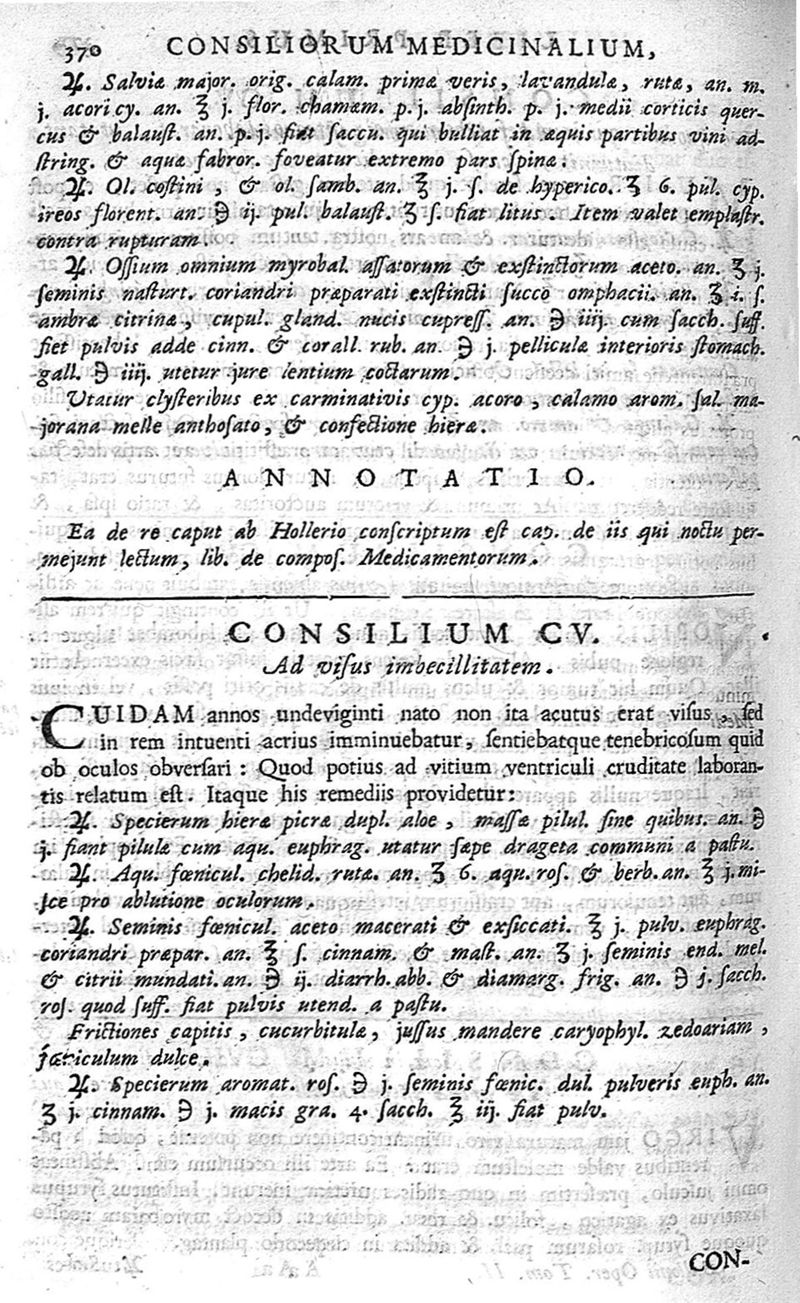 370 CONSILIORUM MEDICINALIUM,
♃. Salviæ major. orig. calam. primæ veris, lavandulæ, rutæ, an. m.
j. acori cy. an. ℥ j. flor. chamæm. p. j. absinth. p. j. medii corticis quer-
cus & balauſt. an. p. j. fiat ſaccu. qui bulliat in æquis partibus vini ad-
ſtring. & aquæ fabror. foveatur extremo pars ſpinæ.
♃. Ol. coſtini, & ol. ſamb. an. ℥ j. ſ. de hyperico. ʒ 6. pul. cyp.
ireos florent. an. ℈ ij. pul. balauſt. ʒ ſ. fiat litus. Item valet emplaſtr.
contra rupturam.
♃. Oſſium omnium myrobal. aſſatorum & exſtinctorum aceto. an. ʒ j.
ſeminis naſturt. coriandri præparati exſtincti ſucco omphacii. an. ʒ i. ſ.
ambræ citrinæ, cupul. gland. nucis cupreſſ. an. ℈ iiij. cum ſacch. ſuff.
fiet pulvis adde cinn. & corall. rub. an. ℈ j. pelliculæ interioris ſtomach.
gall. ℈ iiij. utetur jure lentium coctarum.
Utatur clyſteribus ex carminativis cyp. acoro, calamo arom. ſal. ma-
jorana melle anthoſato, & confectione hieræ.
ANNOTATIO.
Ea de re caput ab Hollerio conſcriptum eſt cap. de iis qui noctu per-
mejunt lectum, lib. de compoſ. Medicamentorum.
CONSILIUM CV.
Ad viſus imbecillitatem.
CUIDAM annos undeviginti nato non ita acutus erat viſus, ſed
in rem intuenti acrius imminuebatur, ſentiebatque tenebricoſum quid
ob oculos obverſari: Quod potius ad vitium ventriculi cruditate laboran-
tis relatum eſt. Itaque his remediis providetur:
♃. Specierum hieræ picræ dupl. aloe, maſſæ pilul. ſine quibus. an. ℈
j. fiant pilulæ cum aqu. euphrag. utatur ſæpe drageta communi a paſtu.
♃. Aqu. fœnicul. chelid. rutæ. an. ʒ 6. aqu. roſ. & berb. an. ℥ j. mi-
ſce pro ablutione oculorum.
♃. Seminis fœnicul. aceto macerati & exſiccati. ℥ j. pulv. euphrag.
coriandri præpar. an. ℥ ſ. cinnam. & maſt. an. ʒ j. ſeminis end. mel.
& citrii mundati. an. ℈ ij. diarrh. abb. & diamarg. frig. an. ℈ j. ſacch.
roſ. quod ſuff. fiat pulvis utend. a paſtu.
Frictiones capitis, cucurbitulæ, juſſus mandere caryophyl. zedoariam,
fœniculum dulce.
♃. Specierum aromat. roſ. ℈ j. ſeminis fœnic. dul. pulveris euph. an.
ʒ j. cinnam. ℈ j. macis gra. 4. ſacch. ℥ iij. fiat pulv.
CON-